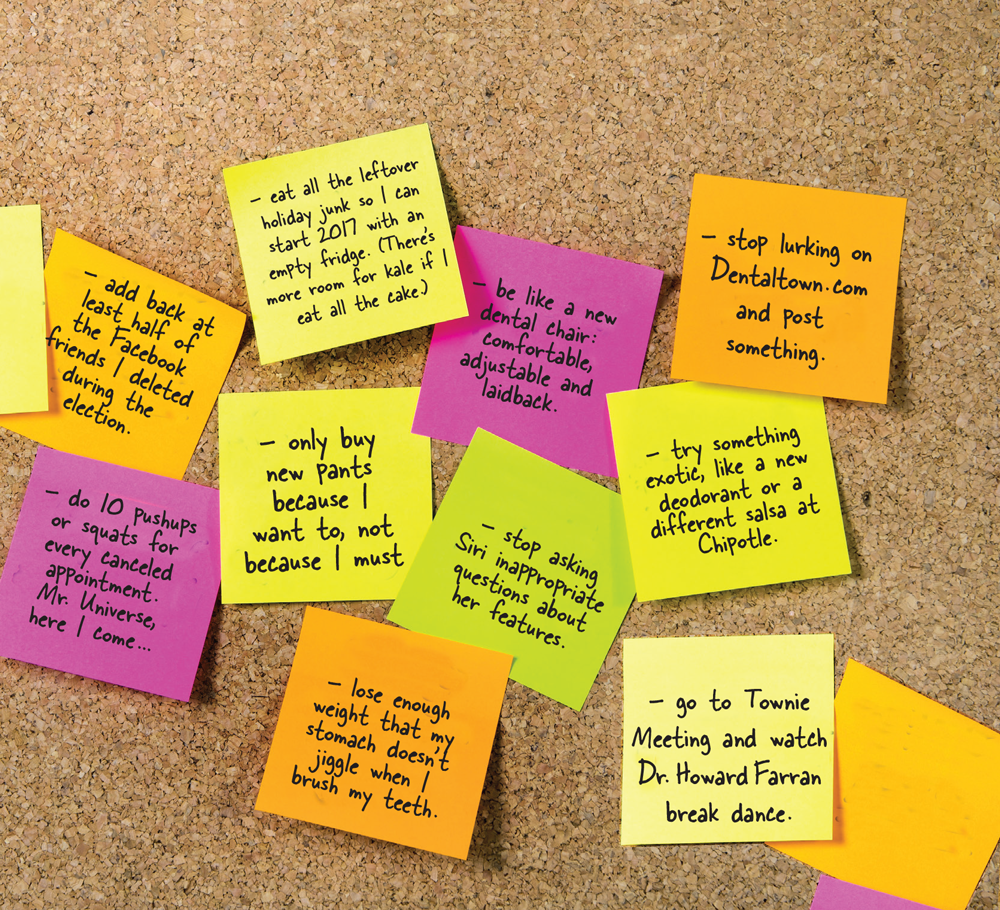 – eat all the leftover
holiday junk so I can
start 2017 with an
empty fridge. (There's
more room for kale if I
eat all the cake.)
– stop lurking on
Dentaltown.com
and post
something.
– add back at
least half of
the Facebook
friends I deleted
during the
election.
– be like a new
dental chair:
comfortable,
adjustable and
laidback.
– only buy
new pants
because I
want to, not
because I must
– try something
exotic, like a new
deodorant or a
different salsa at
Chipotle.
– do 10 pushups
or squats for
every canceled
appointment.
Mr. Universe,
here I come...
– stop asking
Siri inappropriate
questions about
her features.
– lose enough
weight that my
stomach doesn't
jiggle when I
brush my teeth.
– go to Townie
Meeting and watch
Dr. Howard Farran
break dance.